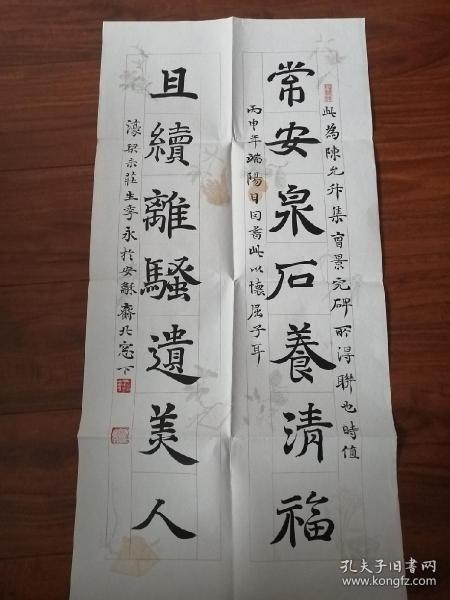 常安泉石養清福
此為陳允升集曹景完碑所得聯也時值
丙申年端陽日因書此以懷屈子耳
且續離騷遺美人
濠梁宗莊生李永於安穌齋北窓下
孔夫子旧书网
www.kongfz.com